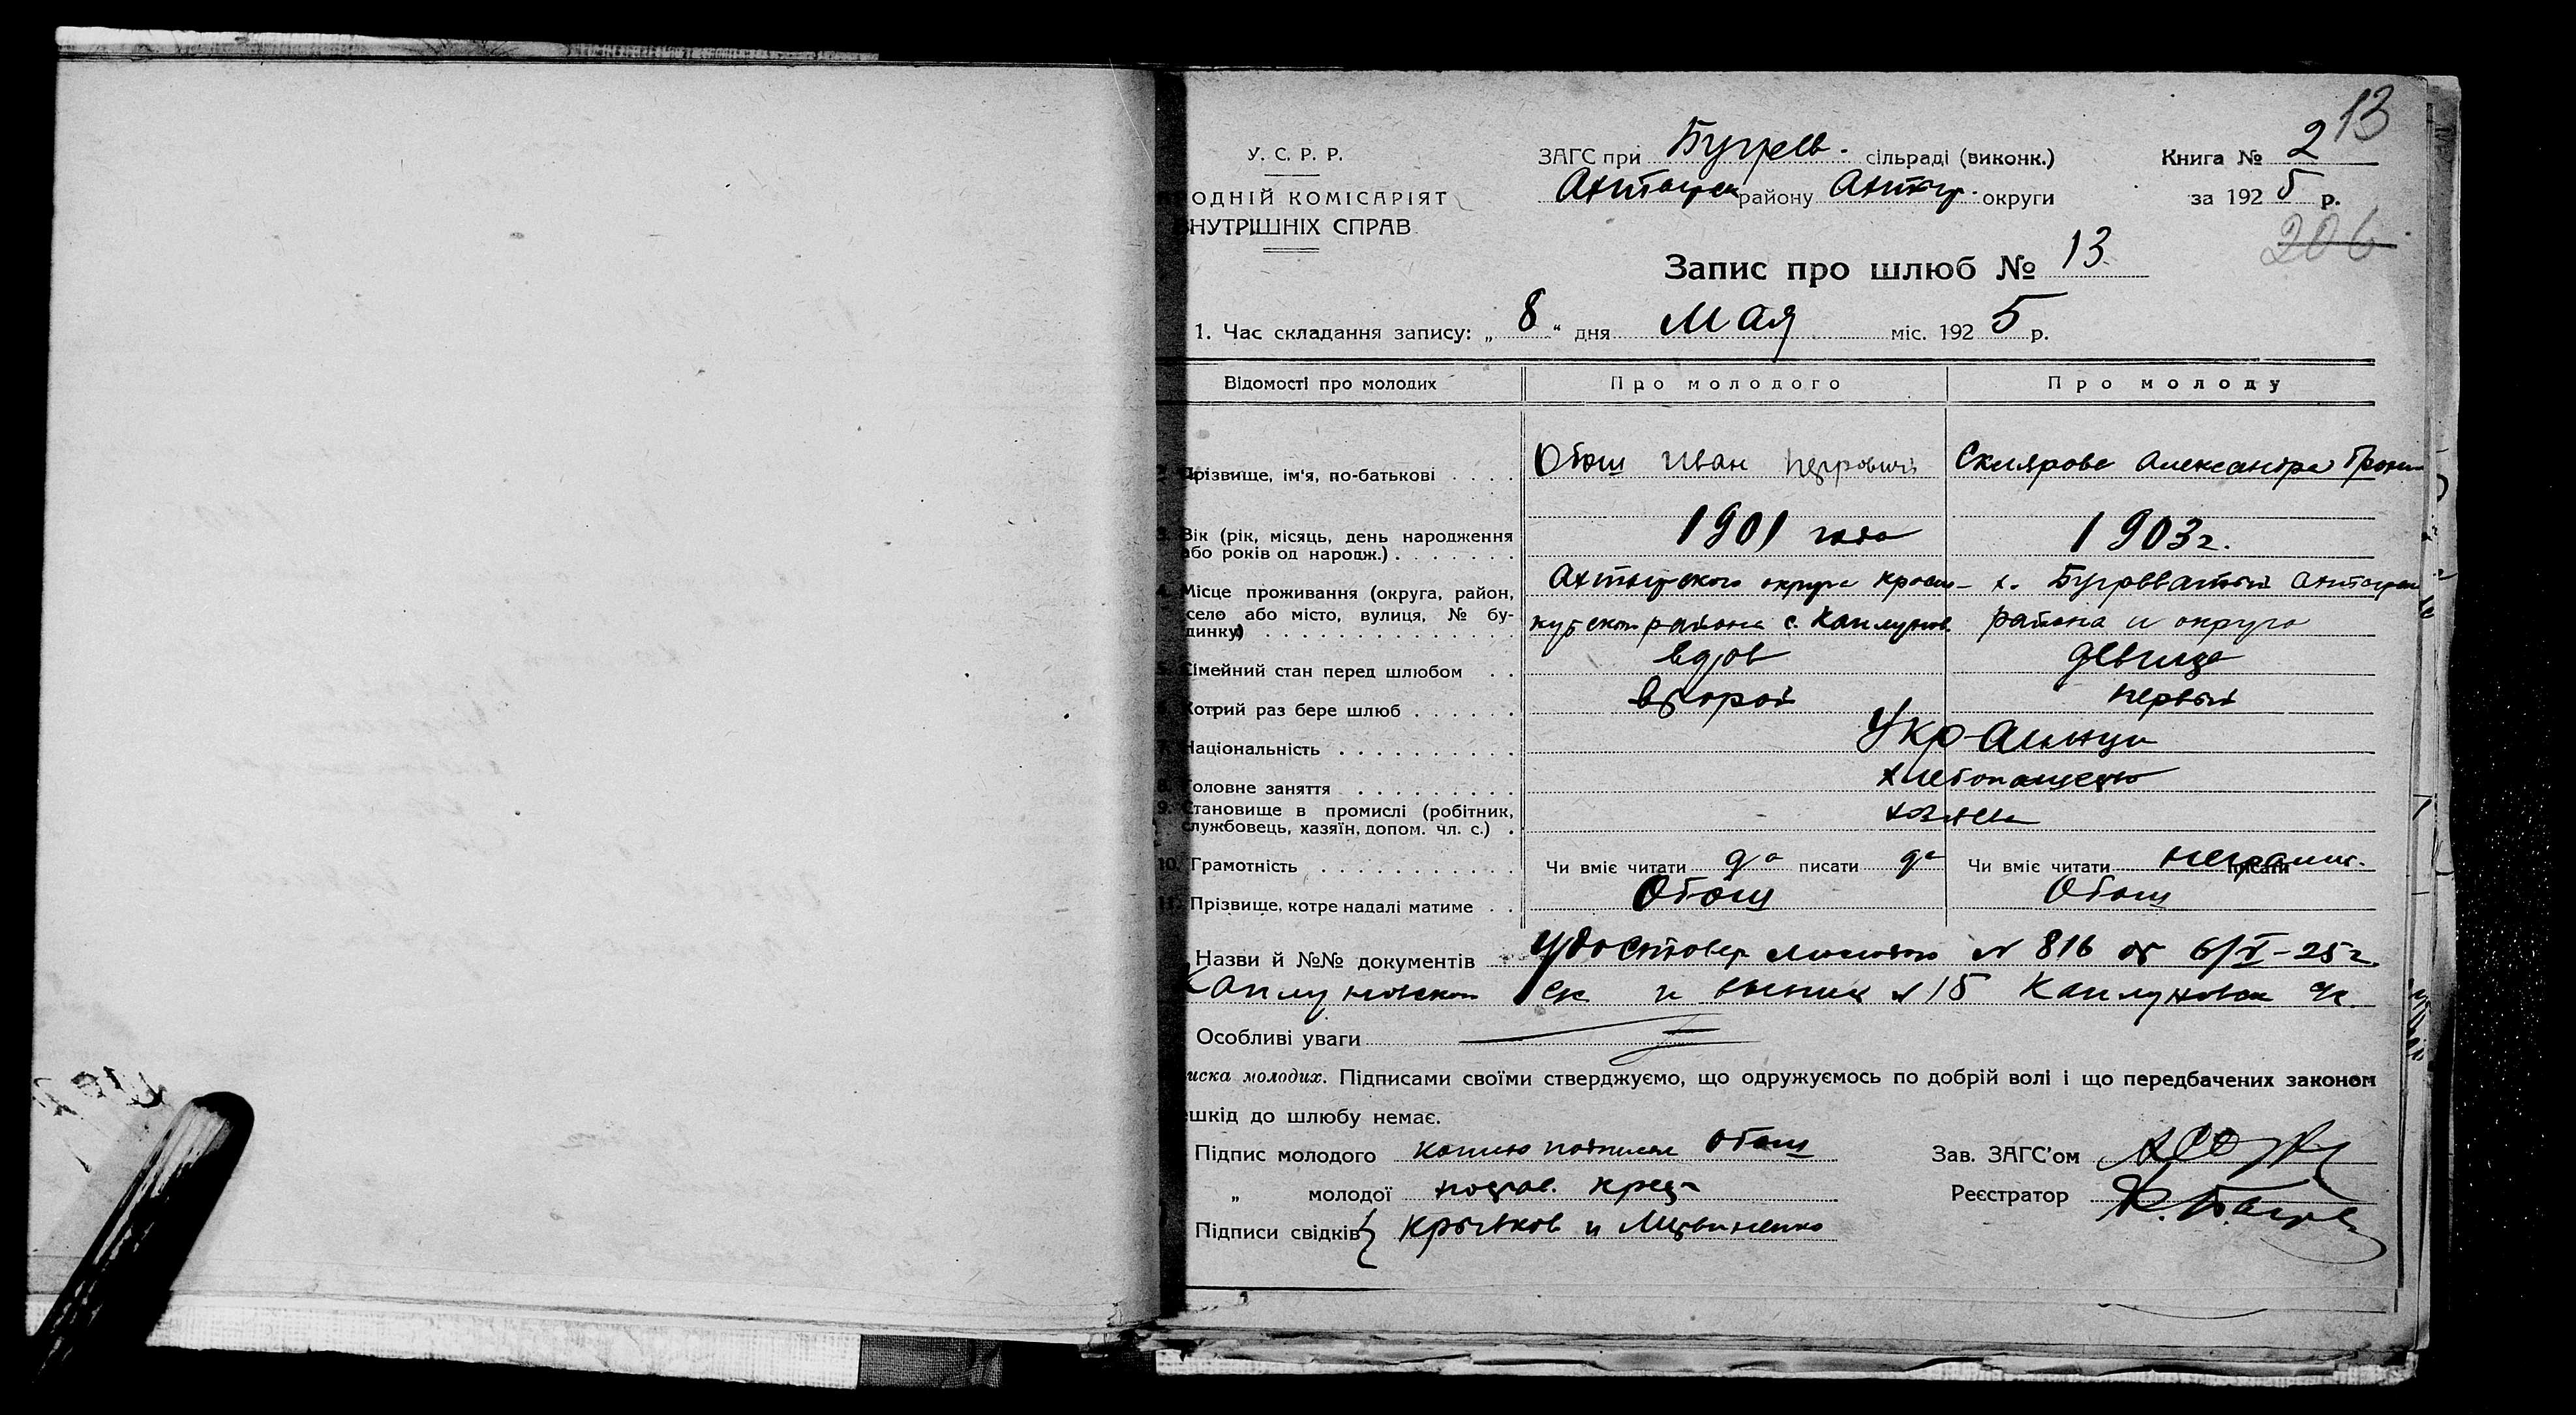 13
У. С. Р. Р.
ОДНІЙ КОМІСАРІЯТ
ВНУТРІШНІХ СПРАВ
ЗАГС при Бугрев. сільраді (виконк.)
Ахтырск району Ахтыр. округи
Книга № 2
за 1925 р.
206
Запис про шлюб № 13
1. Час складання запису: „ 8 “ дня Мая міс. 1925 р.
Відомості про молодих
Про молодого
Про молоду
2. Прізвище, ім'я, по-батькові . . . . Обош Иван Петрович Склярова Александра
3. Вік (рік, місяць, день народження
або років од народж.) . . . . . . . 1901 года 1903 г.
4. Місце проживання (округа, район,
село або місто, вулиця, № бу-
динку)
Ахтырского округа Красно-
кутском района с. Каплунов.
х. Бугроватый Ахтырск
района и округа
5. Сімейний стан перед шлюбом . . вдов девица
6. Котрий раз бере шлюб . . . . . . второй первый
7. Національність . . . . . . . . . . Украинци
8. Головне заняття . . . . . . . . . хлебопашество
9. Становище в промислі (робітник,
службовець, хазяїн, допом. чл. с.) . хозяева
10. Грамотність . . . . . . . . . . . Чи вміє читати да писати да Чи вміє читати неграмот. писати
11. Прізвище, котре надалі матиме . . Обош Обош
Назви й №№ документів удостовер личности № 816 от 6/V-25 г.
Каплуновском с/с и выписк № 15 Каплуновск с/с.
Особливі уваги
иска молодих. Підписами своїми стверджуємо, що одружуємось по добрій волі і що передбачених законом
ешкід до шлюбу немає.
Підпис молодого копию подписал Обош
„ молодої постав. крест
Підписи свідків Крытков и Литвиненко
Зав. ЗАГС'ом
Реєстратор